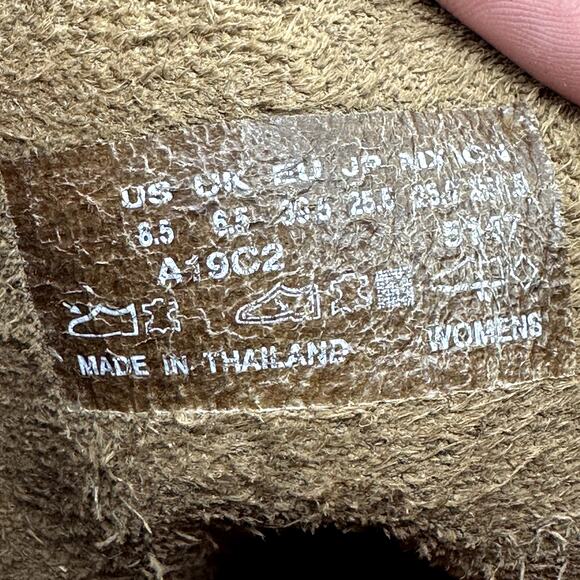 US UK EU JP MX
8.5 6.5 39.5 25.5 25.5
A19C2
MADE IN THAILAND WOMENS